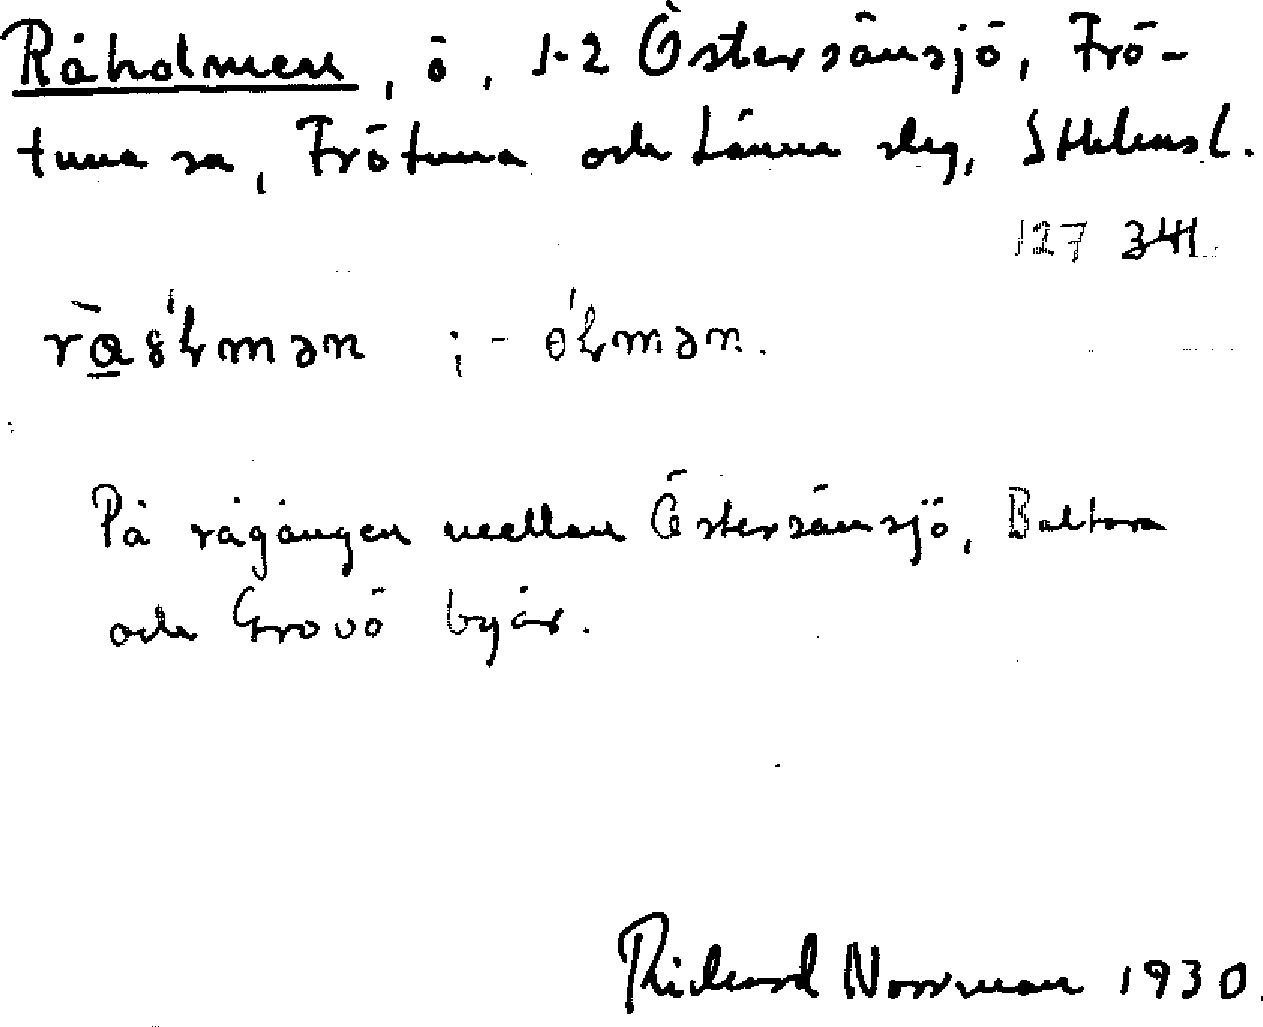 Råholmen, ö, 1-2 Östersånsjö, Frö-
tuna sn, Frötuna och Länna slg, Sthlmsl.
127 341
På rågången mellan Östersånsjö, Baltora
och Grovö byar.
Richard Norrman 1930.